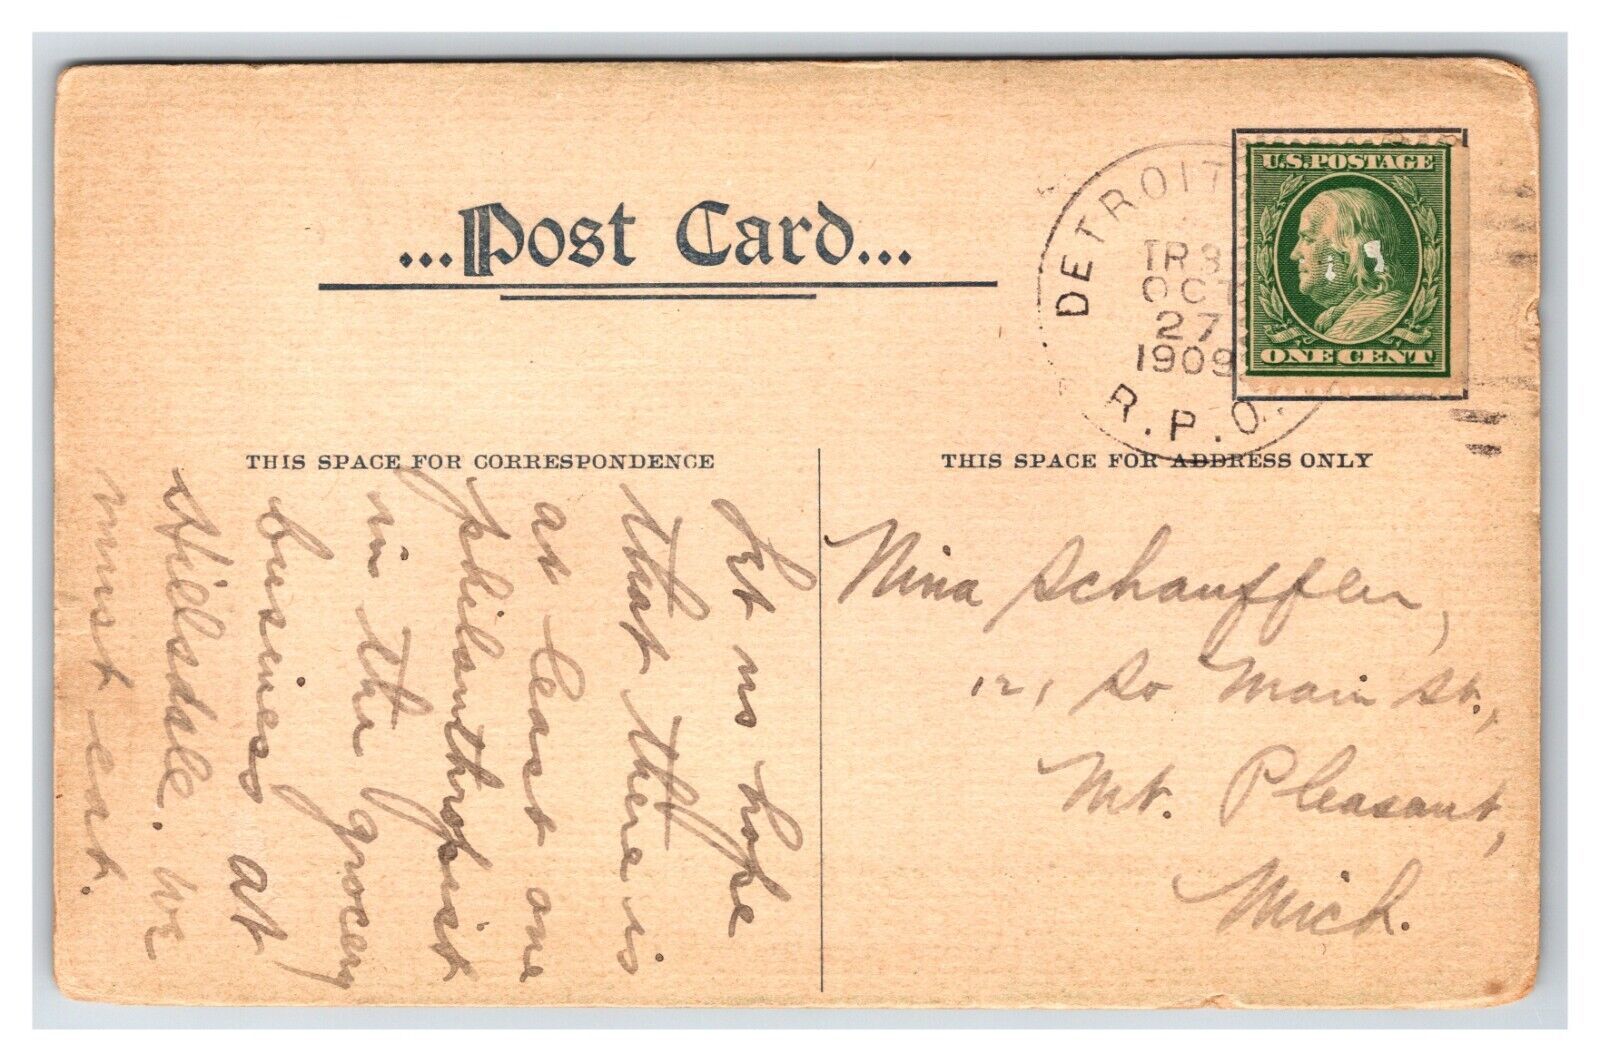 ...Post Card...
U.S.POSTAGE
ONE CENT
DETROIT
TR 3
OCT
27
1909
R.P.O.
THIS SPACE FOR CORRESPONDENCE
THIS SPACE FOR ADDRESS ONLY
Let us hope
that there is
at least one
philanthropist
in the grocery
business at
Hillsdale. We
must eat.
Nina Schauffler,
121 So Main St.,
Mt. Pleasant,
Mich.